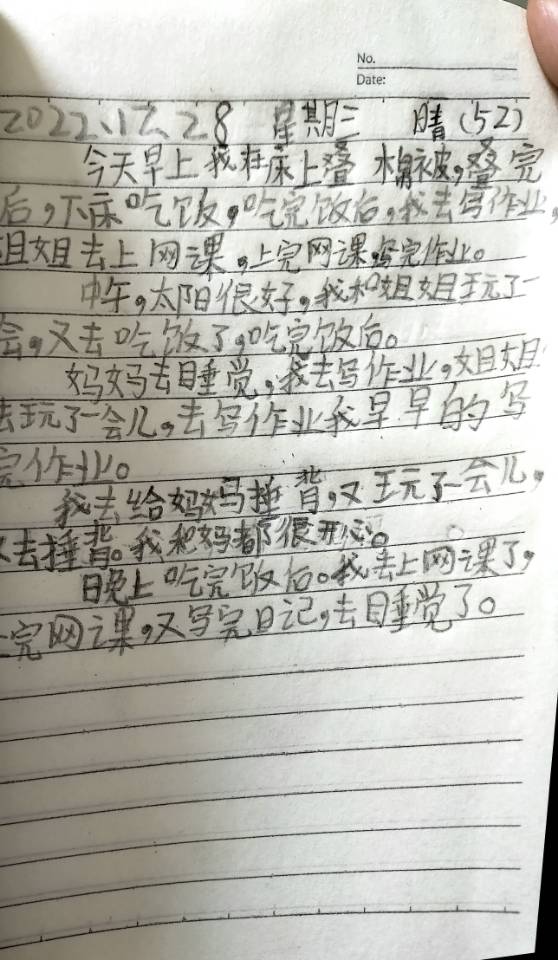 No.
Date:
2022、12、28 星期三 晴(52)
今天早上我在床上叠棉被,叠完
后,下床吃饭,吃完饭后,我去写作业,
姐姐去上网课,上完网课,写完作业。
中午,太阳很好,我和姐姐玩了一
会,又去吃饭了,吃完饭后。
妈妈去睡觉,我去写作业,姐姐
去玩了一会儿,去写作业我早早的写
完作业。
我去给妈妈捶背,又玩了一会儿,
又去捶背。我和妈都很开心。
晚上吃完饭后。我去上网课了,
上完网课,又写完日记,去睡觉了。